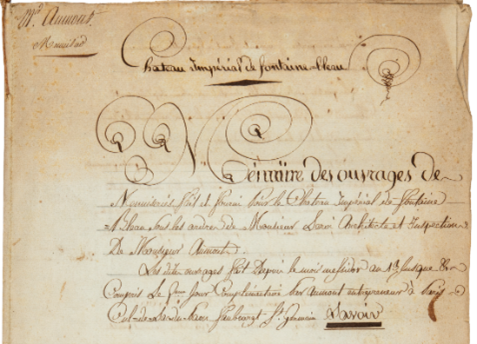 Mr. Aumont.
Menuisier
Chateau Impérial de fontaine-bleau
Mémoire des ouvrages de
Menuiserie fait et fourni Pour le Chateau Impérial de fontaine
Bleau Sous les ordres de Monsieur Architecte et Inspection
De Monsieur Aumont.
Les dits ouvrages fait Depuis le mois messidor an jusque &
Compris Le jour Complémentaire Par Aumont entrepreneur à Paris
Cul-de-sac du faubourg St. Germain Savoir